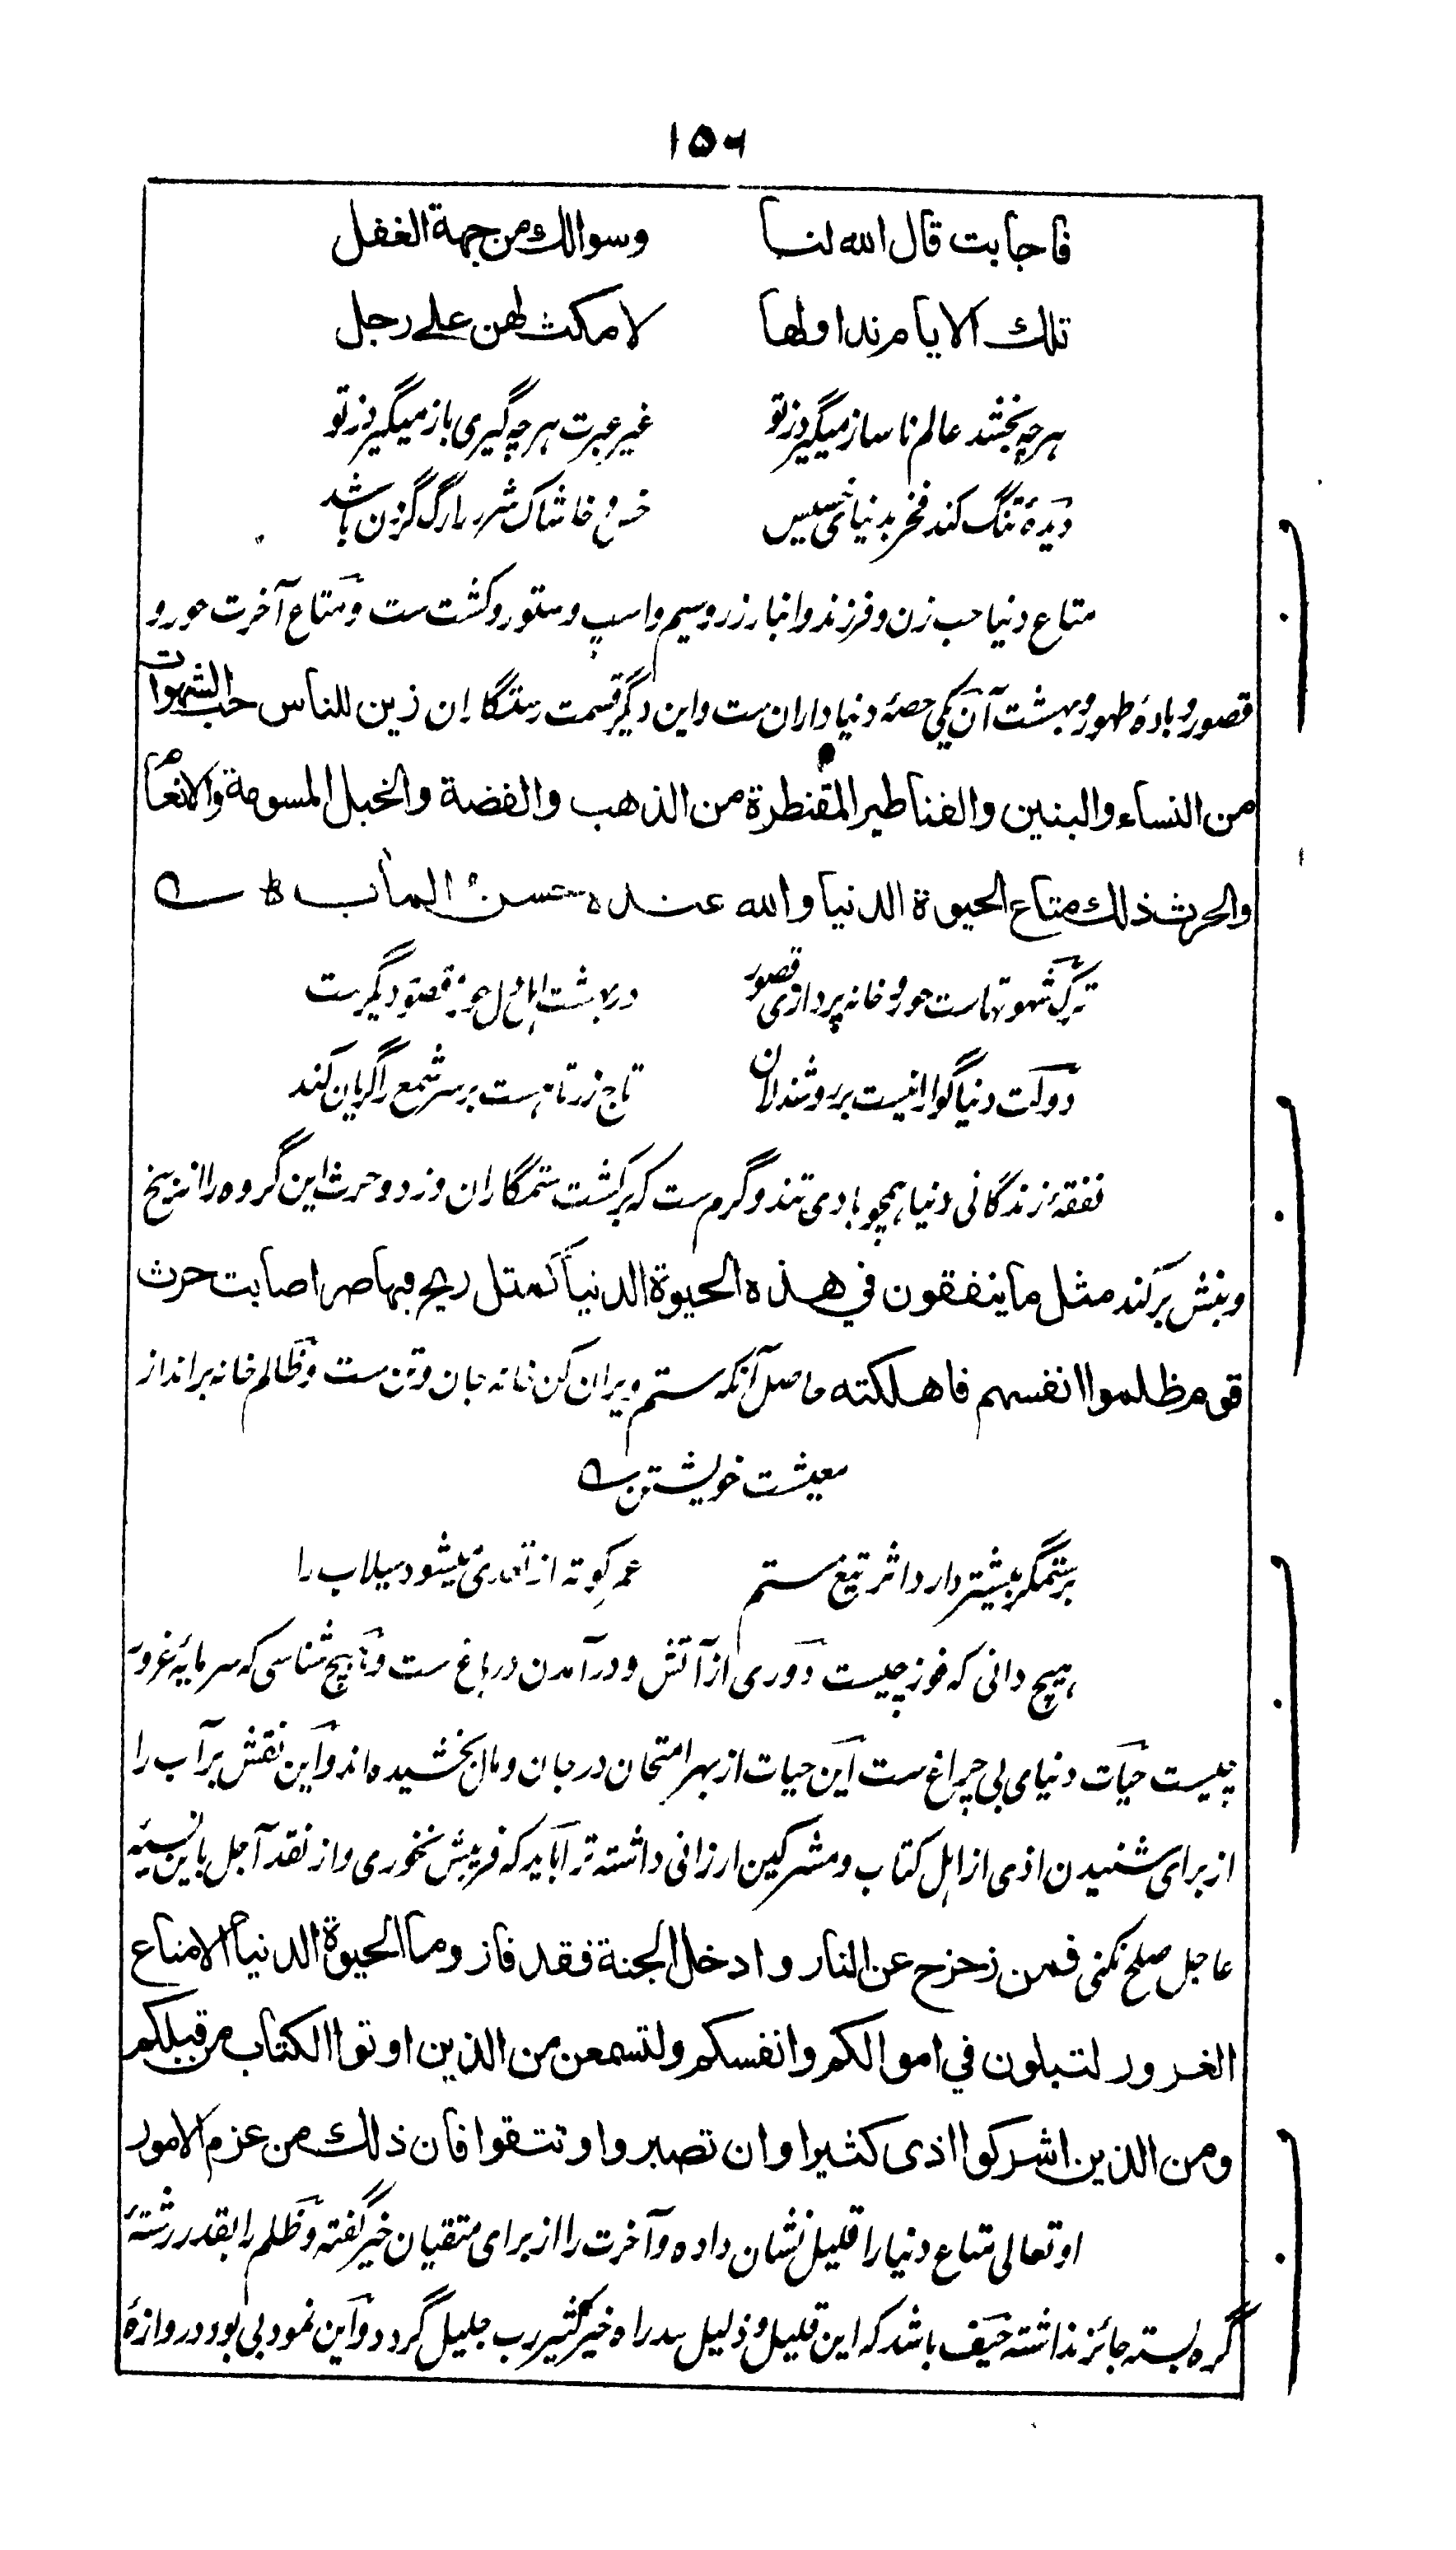 ۱۵۶
فاجابت قال الله لنا وسوالك من جهة الغفل
تلك الايام نداولها لا مكث لهن على رجل
هرچه بخشد عالم ناساز میگیرد ز تو غیر عبرت هرچه گیری باز میگیرد ز تو
دیدهٔ تنگ کند فخر بدنیای خسیس خس و خاشاک شرر را رگ گردن باشد
متاع دنیا حب زن و فرزند و انبار زر و سیم و اسپ و ستور و کشت ست و متاع آخرت حور و
قصور و بادهٔ طهور و بهشت آن یکی حصهٔ دنیاداران ست و این دگر قسمت رستگاران زين للناس حب الشهوات
من النساء والبنين والقناطير المقنطرة من الذهب والفضة والخيل المسومة والانعام
والحرث ذلك متاع الحيوة الدنيا والله عنده حسن المآب ه
ترک شهوتهاست حور و خانه پردازی قصور در بهشت اهل دل حور و قصور دیگر ست
دولت دنیا گوارا نیست بر روشندلان تاج زر تا هست بر سر شمع را گریان کند
نفقهٔ زندگانی دنیا همچو بادی تند و گرم ست که بر کشت ستمگاران وزد و حرث این گروه را از بیخ
و بنش برکند مثل ما ينفقون في هذه الحيوة الدنيا كمثل ريح فيها صر اصابت حرث
قوم ظلموا انفسهم فاهلكته حاصل آنکه ستم ویران کن خانه جان و تن ست و ظالم خانه برانداز
معیشت خویشتن
بر ستمگر بیشتر دارد اثر تیغ ستم عمر کوته از تعدی میشود سیلاب را
هیچ دانی که فوز چیست دوری از آتش و درآمدن در باغ ست و هیچ شناسی که سرمایهٔ غرور
چیست حیات دنیای بی چراغ ست این حیات از بهر امتحان در جان و مال بخشیده اند و این نقش بر آب را
از برای شنیدن اذی از اهل کتاب و مشرکین ارزانی داشته ترا باید که فریبش نخوری و از نقد آجل باین نسیه
عاجل صلح نکنی فمن زحزح عن النار وادخل الجنة فقد فاز وما الحيوة الدنيا الا متاع
الغرور لتبلون في اموالكم وانفسكم ولتسمعن من الذين اوتوا الكتاب من قبلكم
ومن الذين اشركوا اذى كثيرا وان تصبروا وتتقوا فان ذلك من عزم الامور
او تعالی متاع دنیا را قلیل نشان داده و آخرت را از برای متقیان خیر گفته و ظلم را بقدر رشتهٔ
گره بسته جائز نداشته حیف باشد که این قلیل و ذلیل سد راه خیر کثیر رب جلیل گردد و این نمود بی بود دروازهٔ